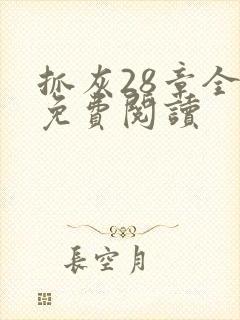 抓灰28章全
免費閱讀
長空月